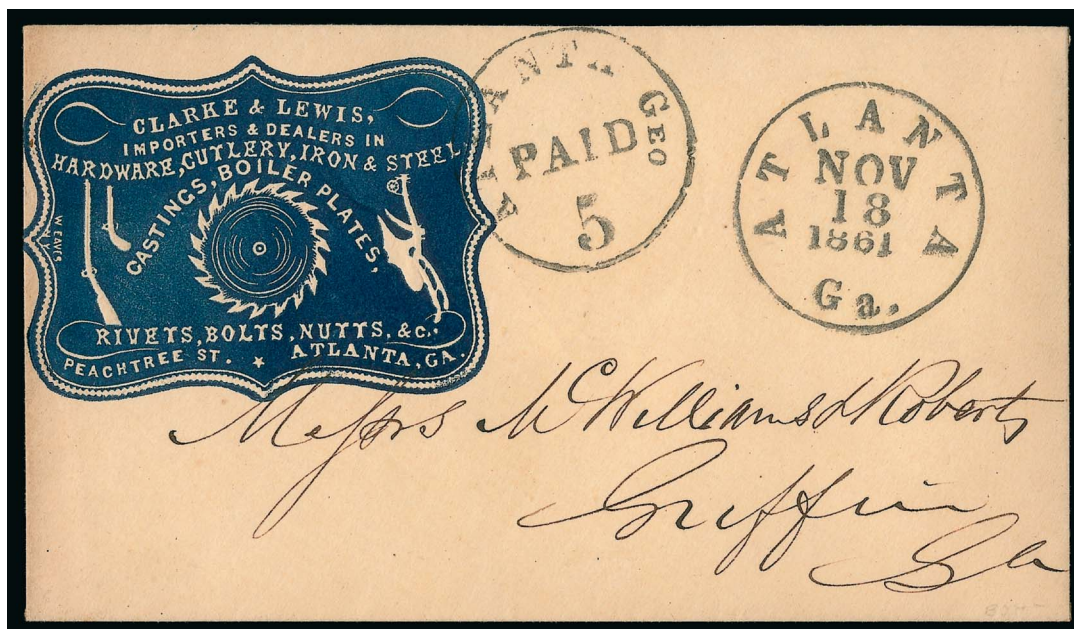 CLARKE & LEWIS,
IMPORTERS & DEALERS IN
HARDWARE, CUTLERY, IRON & STEEL
CASTINGS, BOILER PLATES,
RIVETS, BOLTS, NUTTS, &c.
PEACHTREE ST. ★ ATLANTA, GA.
ATLANTA GEO
PAID
5
ATLANTA
NOV
18
1861
Ga.
Messrs McWilliams & Roberts
Griffin
Ga